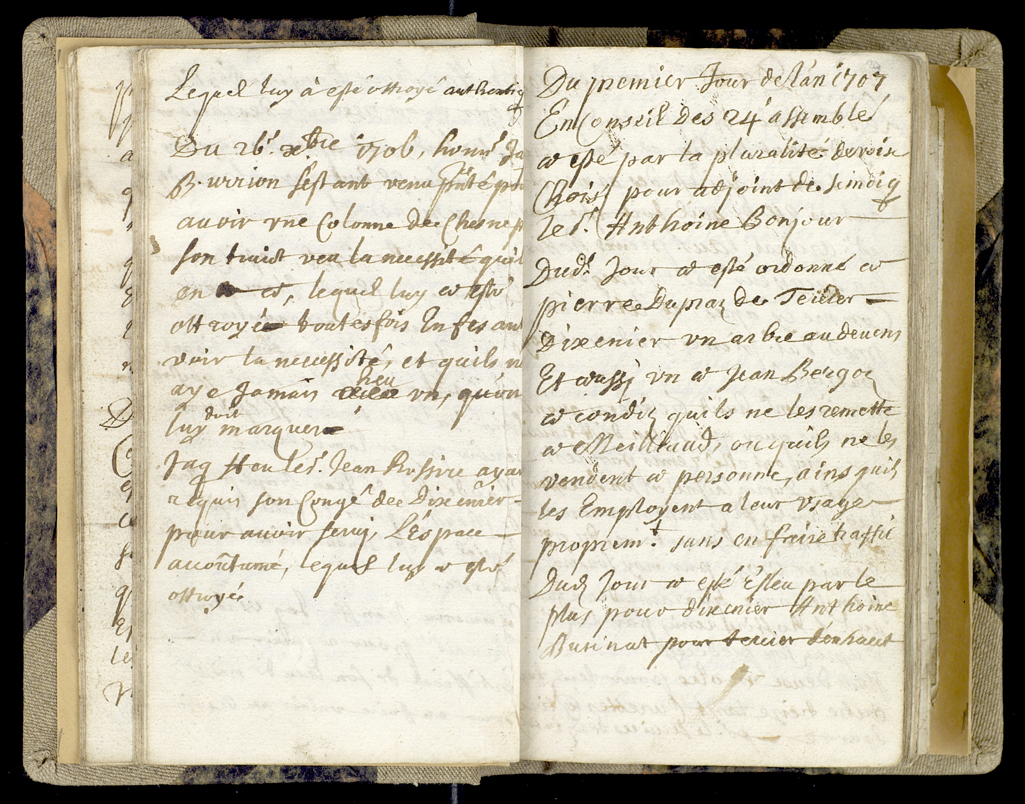 Lequel luy à esté ottroyé authentiq
Du 26e xbre 1706, honn.
Burrion s'estant venu pñté po
avoir vne Colonne de Chesne p
son truict veu la necessité quil
en a, lequel luy a esté
ottroyé toutesfois
voir la necessité, et quils n
aye Jamais lieu vn, quon
luy doit marquer
Jaq Jean Rossire aya
requis son Congé de Dixenier
pour avoir servi, L'éspace
accoûtumé, lequel luy a esté
ottroyé
Du premier Jour de l'an 1707
En Conseil des 24 assemblé
a esté par la pluralité de voix
Choisi pour adjoint de
le Sr. Anthoine Bonjour
Dud. Jour a esté ordonné a
pierre Dupraz de Tercier
Dixenier vn arbre au devens
Et aussi vn a Jean
a condi quils ne les remette
a Meilliaud, ou quils ne les
vendent a personne, ains quils
les Employent a leur vsage
propremt. sans en faire traffi
Dud Jour a esté Esleu par le
plus pour dixenier Anthoine
Butinat pour tercier